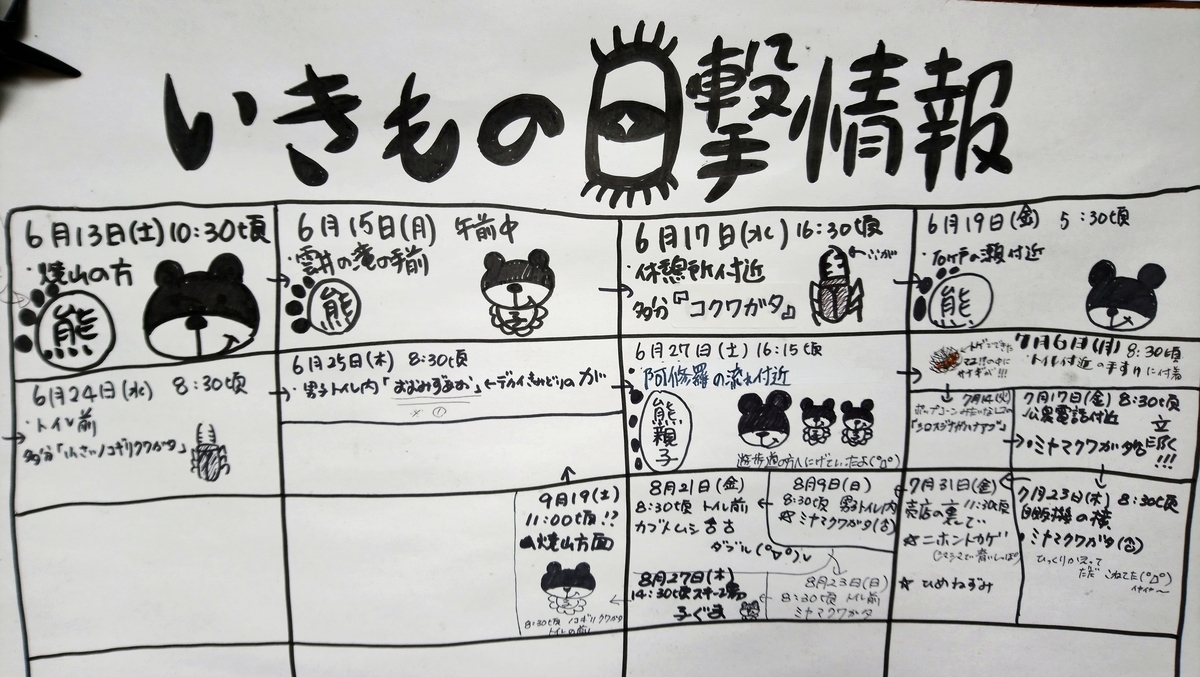 いきもの目撃情報
6月13日(土)10:30頃
・焼山の方
熊
6月15日(月) 午前中
・雲井の滝の手前
熊
6月17日(水) 16:30頃
・休憩所付近
多分『コクワガタ』
6月19日(金) 5:30頃
・石ケ戸の瀬付近
熊
6月24日(水) 8:30頃
・トイレ前
多分「小さいノコギリクワガタ」
6月25日(木) 8:30頃
・男子トイレ内「おおみずあお」←デカイきみどりの ガ
※①
6月27日(土) 16:15頃
・阿修羅の流れ付近
熊親子
遊歩道の方へにげていったよ(°o°)
7月6日(月) 8:30頃
・トイレ付近の手すりに付着
7月14日(火)
ポップコーンみたいなシロの
「シロスジナガハナアブ」
7月17日(金) 8:30頃
公衆電話付近
・ミヤマクワガタ(合)
立
!!!
7月23日(木) 8:30頃
自販機の横
・ミヤマクワガタ(合)
ひっくりかえって
7月31日(金)
11:30頃
売店の裏で
☆ニホントカゲ
☆ひめねずみ
8月9日(日)
8:30頃 男子トイレ内
☆ミヤマクワガタ(合)
8月21日(金)
8:30頃 トイレ前
カブトムシ
ダブル(°▽°)v
8月23日(日)
8:30頃 トイレ前
ミヤマクワガタ
8月27日(木)
14:30頃
子ぐま
9月19日(土)
11:00頃!?
焼山方面
8:30頃 ノコギリクワガタ
トイレの前